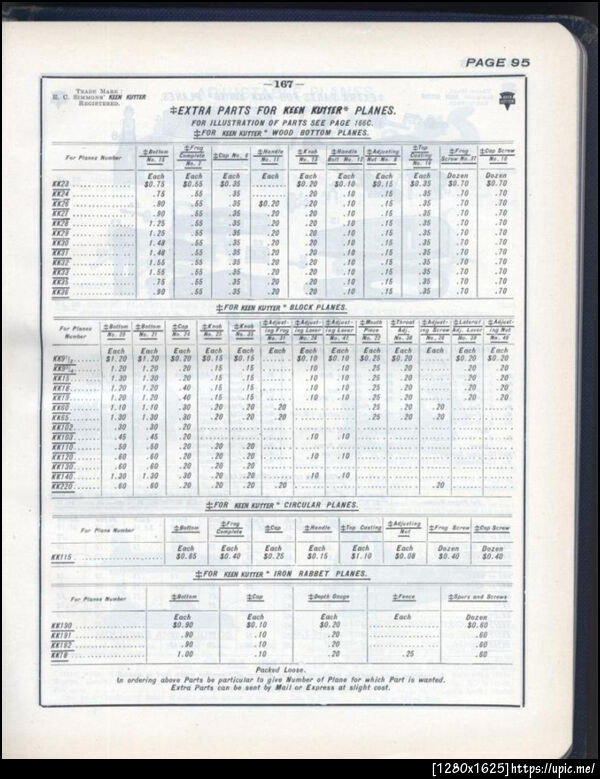 PAGE 95
—167—
TRADE MARK
E. C. SIMMONS' KEEN KUTTER
REGISTERED.
‡EXTRA PARTS FOR KEEN KUTTER* PLANES.
FOR ILLUSTRATION OF PARTS SEE PAGE 166C.
‡FOR KEEN KUTTER* WOOD BOTTOM PLANES.
For Planes Number ‡Bottom No. 15 ‡Frog Complete ‡Cap No. 6 ‡Handle No. 11 ‡Knob No. 13 ‡Handle Bolt No. 12 ‡Adjusting Nut No. 8 ‡Top Casting ‡Frog Screw ‡Cap Screw
Each Each Each Each Each Each Each Each Dozen Dozen
KK23 $0.75 $0.55 $0.35 $0.20 $0.10 $0.15 $0.35 $0.70 $0.70
KK24 .75 .55 .35 .20 .10 .15 .35 .70 .70
KK26 .90 .55 .35 $0.20 .20 .10 .15 .35 .70 .70
KK27 .90 .55 .35 .20 .20 .10 .15 .35 .70 .70
KK28 1.25 .55 .35 .20 .20 .10 .15 .35 .70 .70
KK29 1.25 .55 .35 .20 .20 .10 .15 .35 .70 .70
KK30 1.48 .55 .35 .20 .20 .10 .15 .35 .70 .70
KK31 1.48 .55 .35 .20 .20 .10 .15 .35 .70 .70
KK32 1.55 .55 .35 .20 .20 .10 .15 .35 .70 .70
KK33 1.55 .55 .35 .20 .20 .10 .15 .35 .70 .70
KK35 .75 .55 .35 .20 .20 .10 .15 .35 .70 .70
KK36 .90 .55 .35 .20 .20 .10 .15 .35 .70 .70
‡FOR KEEN KUTTER* BLOCK PLANES.
For Planes Number ‡Bottom No. 20 ‡Bottom No. 21 ‡Cap No. 24 ‡Knob No. 25 ‡Knob ‡Adjusting Frog ‡Adjusting Lever ‡Adjusting Lever ‡Mouth Piece No. 22 ‡Throat Adj. ‡Adjusting Screw ‡Lateral Adj. Lever ‡Adjusting Nut
Each Each Each Each Each Each Each Each Each Each Each Each Each
KK9½ $1.20 $1.20 $0.20 $0.15 $0.15 $0.10 $0.10 $0.25 $0.20 $0.20 $0.20
KK9¾ 1.20 1.20 .20 .15 .15 .10 .10 .25 .20 .20 .20
KK15 1.30 1.30 .20 .15 .15 .10 .10 .25 .20 .20 .20
KK18 1.20 1.20 .40 .15 .15 .10 .10 .25 .20 .20 .20
KK19 1.20 1.20 .40 .15 .15 .10 .10 .25 .20 .20 .20
KK60 1.10 1.10 .30 .20 .20 .20 .25 .20 .20
KK65 1.30 1.30 .30 .20 .20 .20 .25 .20 .20
KK102 .30 .30 .20
KK103 .45 .45 .20 .10 .10
KK110 .50 .50 .20 .20 .20
KK120 .60 .60 .20 .20 .20 .10 .10
KK130 .60 .60 .20 .20 .20
KK140 1.30 1.30 .30 .20 .20 .10 .10
KK220 .60 .60 .20 .20 .20 .20 .20
‡FOR KEEN KUTTER* CIRCULAR PLANES.
For Plane Number ‡Bottom ‡Frog Complete ‡Cap ‡Handle ‡Top Casting ‡Adjusting Nut ‡Frog Screw ‡Cap Screw
Each Each Each Each Each Each Dozen Dozen
KK115 $0.65 $0.40 $0.25 $0.15 $1.10 $0.08 $0.40 $0.40
‡FOR KEEN KUTTER* IRON RABBET PLANES.
For Planes Number ‡Bottom ‡Cap ‡Depth Gauge ‡Fence ‡Spurs and Screws
Each Each Each Each Dozen
KK190 $0.90 $0.10 $0.20 $0.60
KK191 .90 .10 .20 .60
KK192 .90 .10 .20 .60
KK78 1.00 .10 .20 .25 .60
Packed Loose.
In ordering above Parts be particular to give Number of Plane for which Part is wanted.
Extra Parts can be sent by Mail or Express at slight cost.
[1280x1625]https://upic.me/